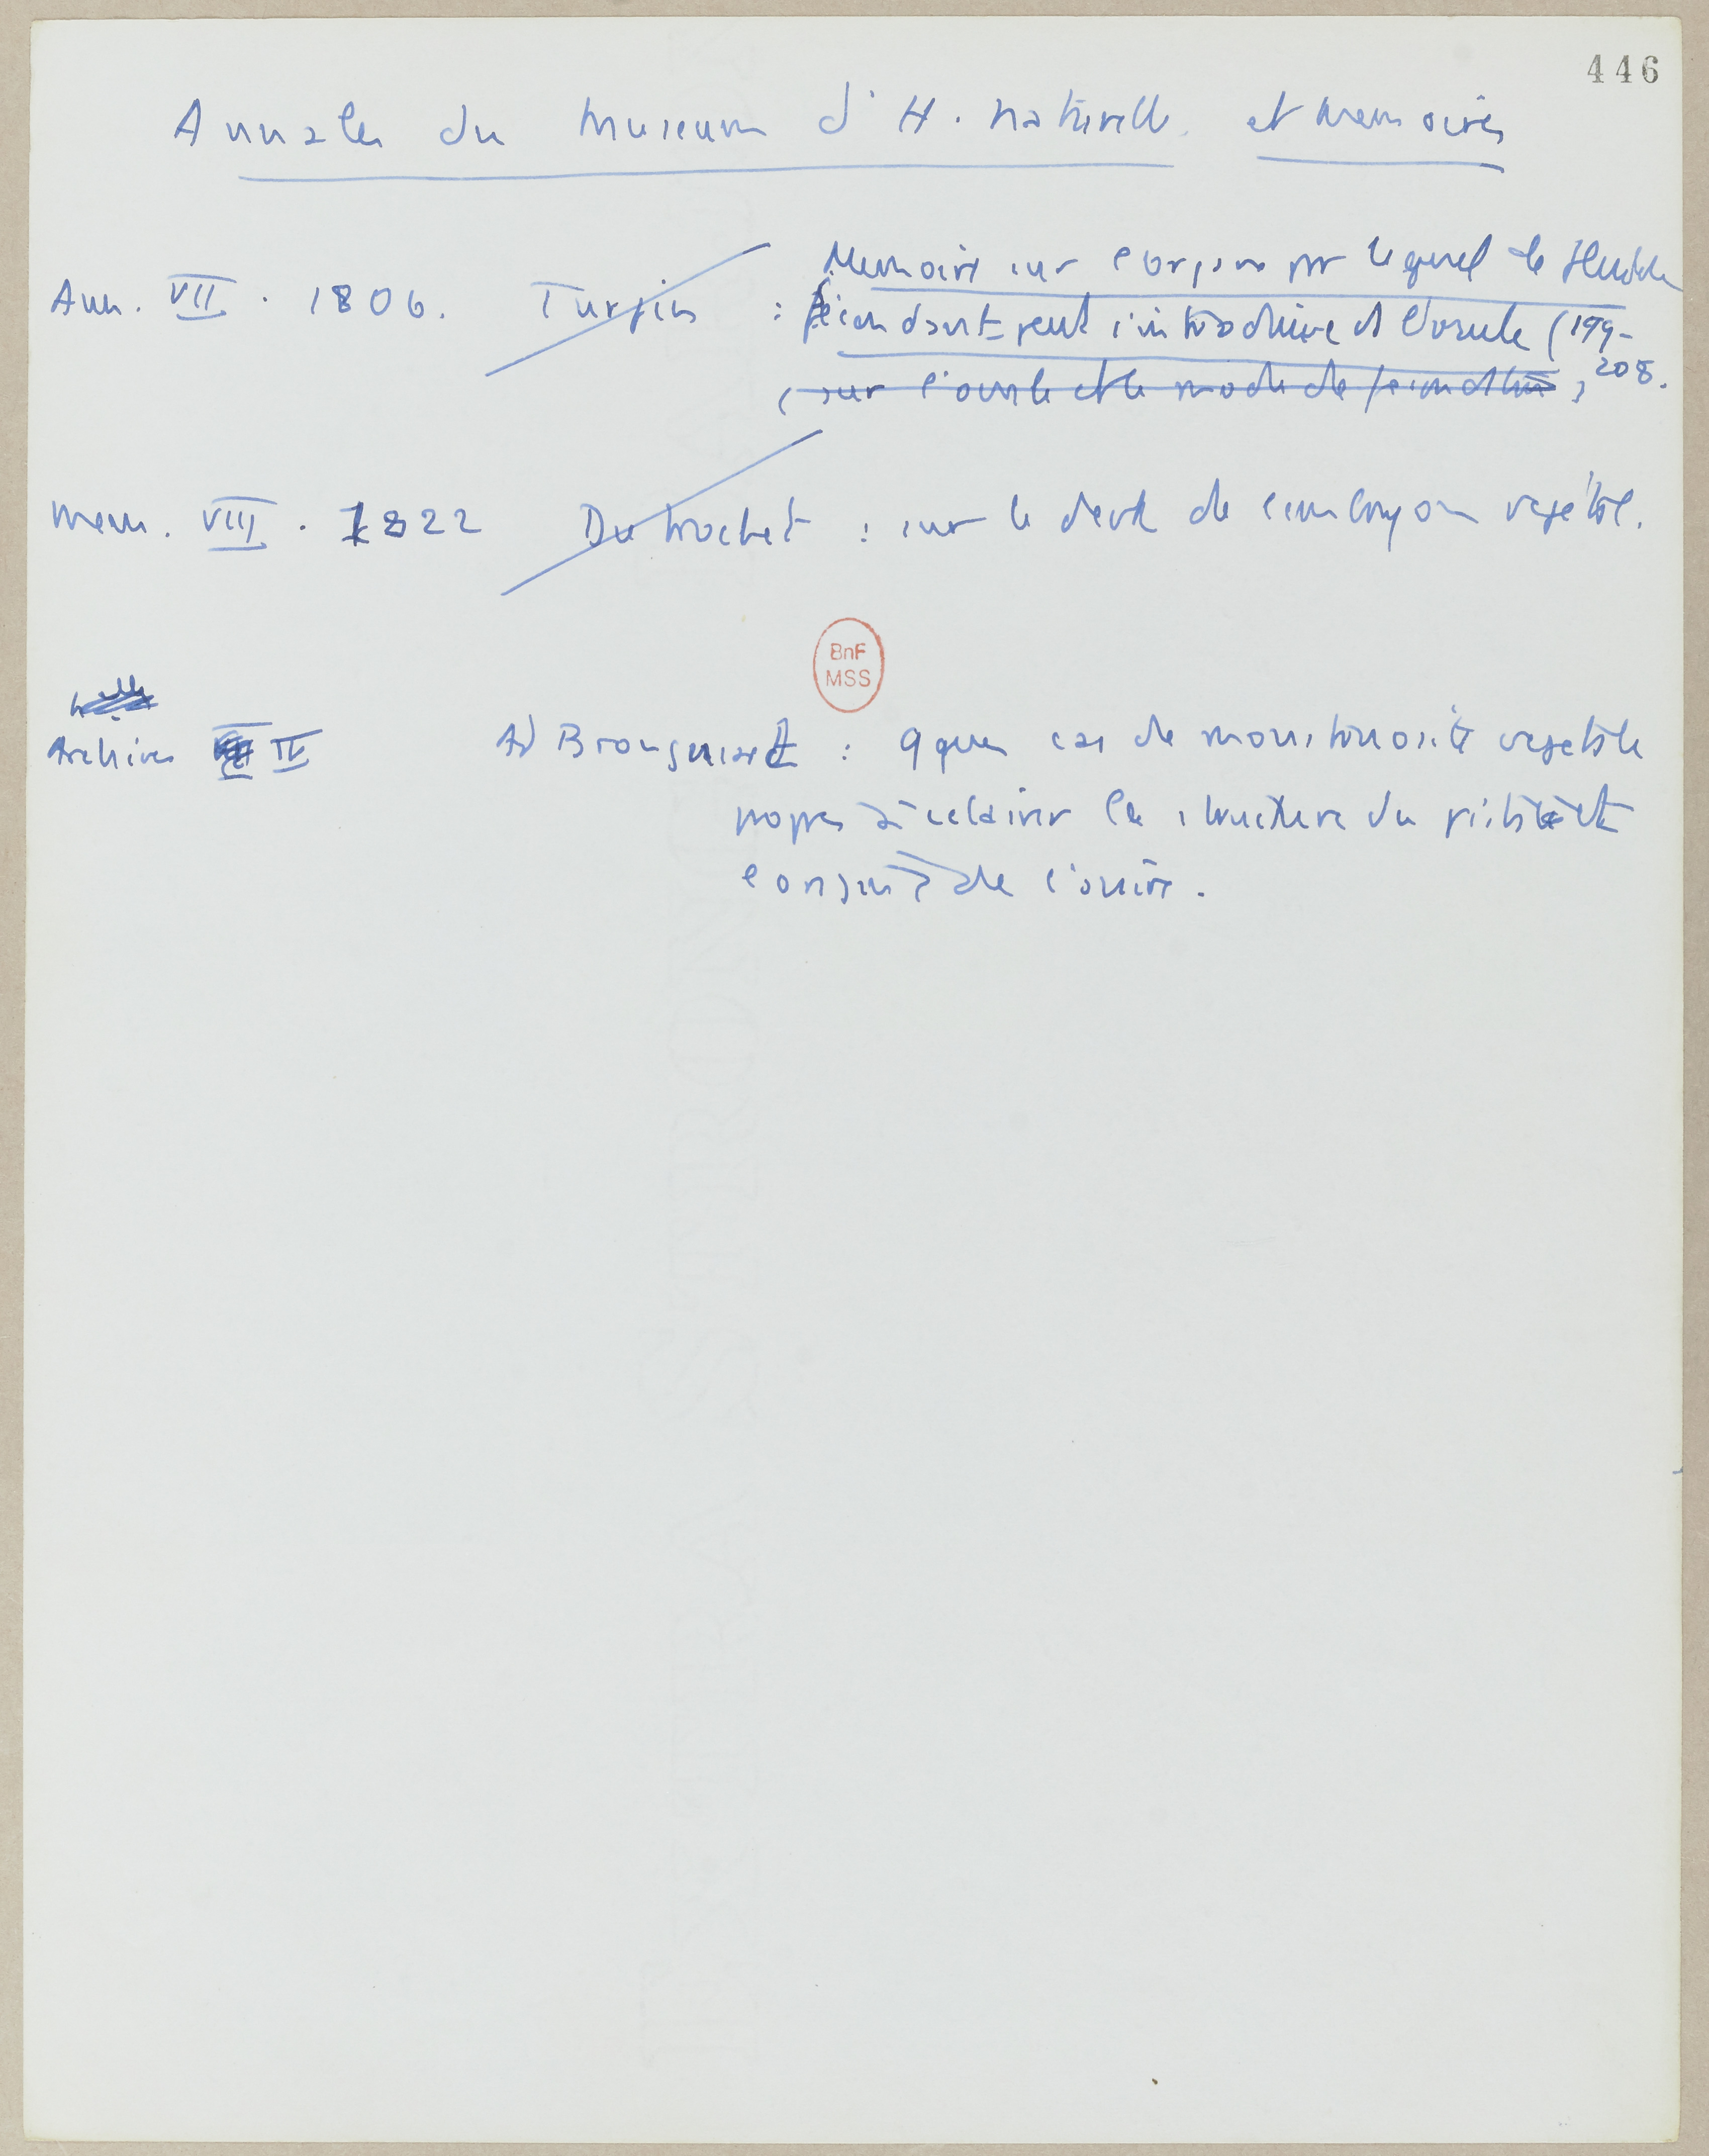 446
Annales du Museum d'H. Naturelle et Memoires
Memoire sur l'organe par lequel le fluide
Ann. VII. 1806. Turpin : fécondant peut s'introduire ds l'ovule (199-
(sur l'ovule et le mode de fecondation) 208.
Mem. VIII. 1822 Dutrochet : sur le devt de l'embryon végétal.
BnF
MSS
Archives IV Ad Brongniart : qques cas de monstruosité végétale
propres à éclairer la structure du pistil et
l'origine de l'ovaire.